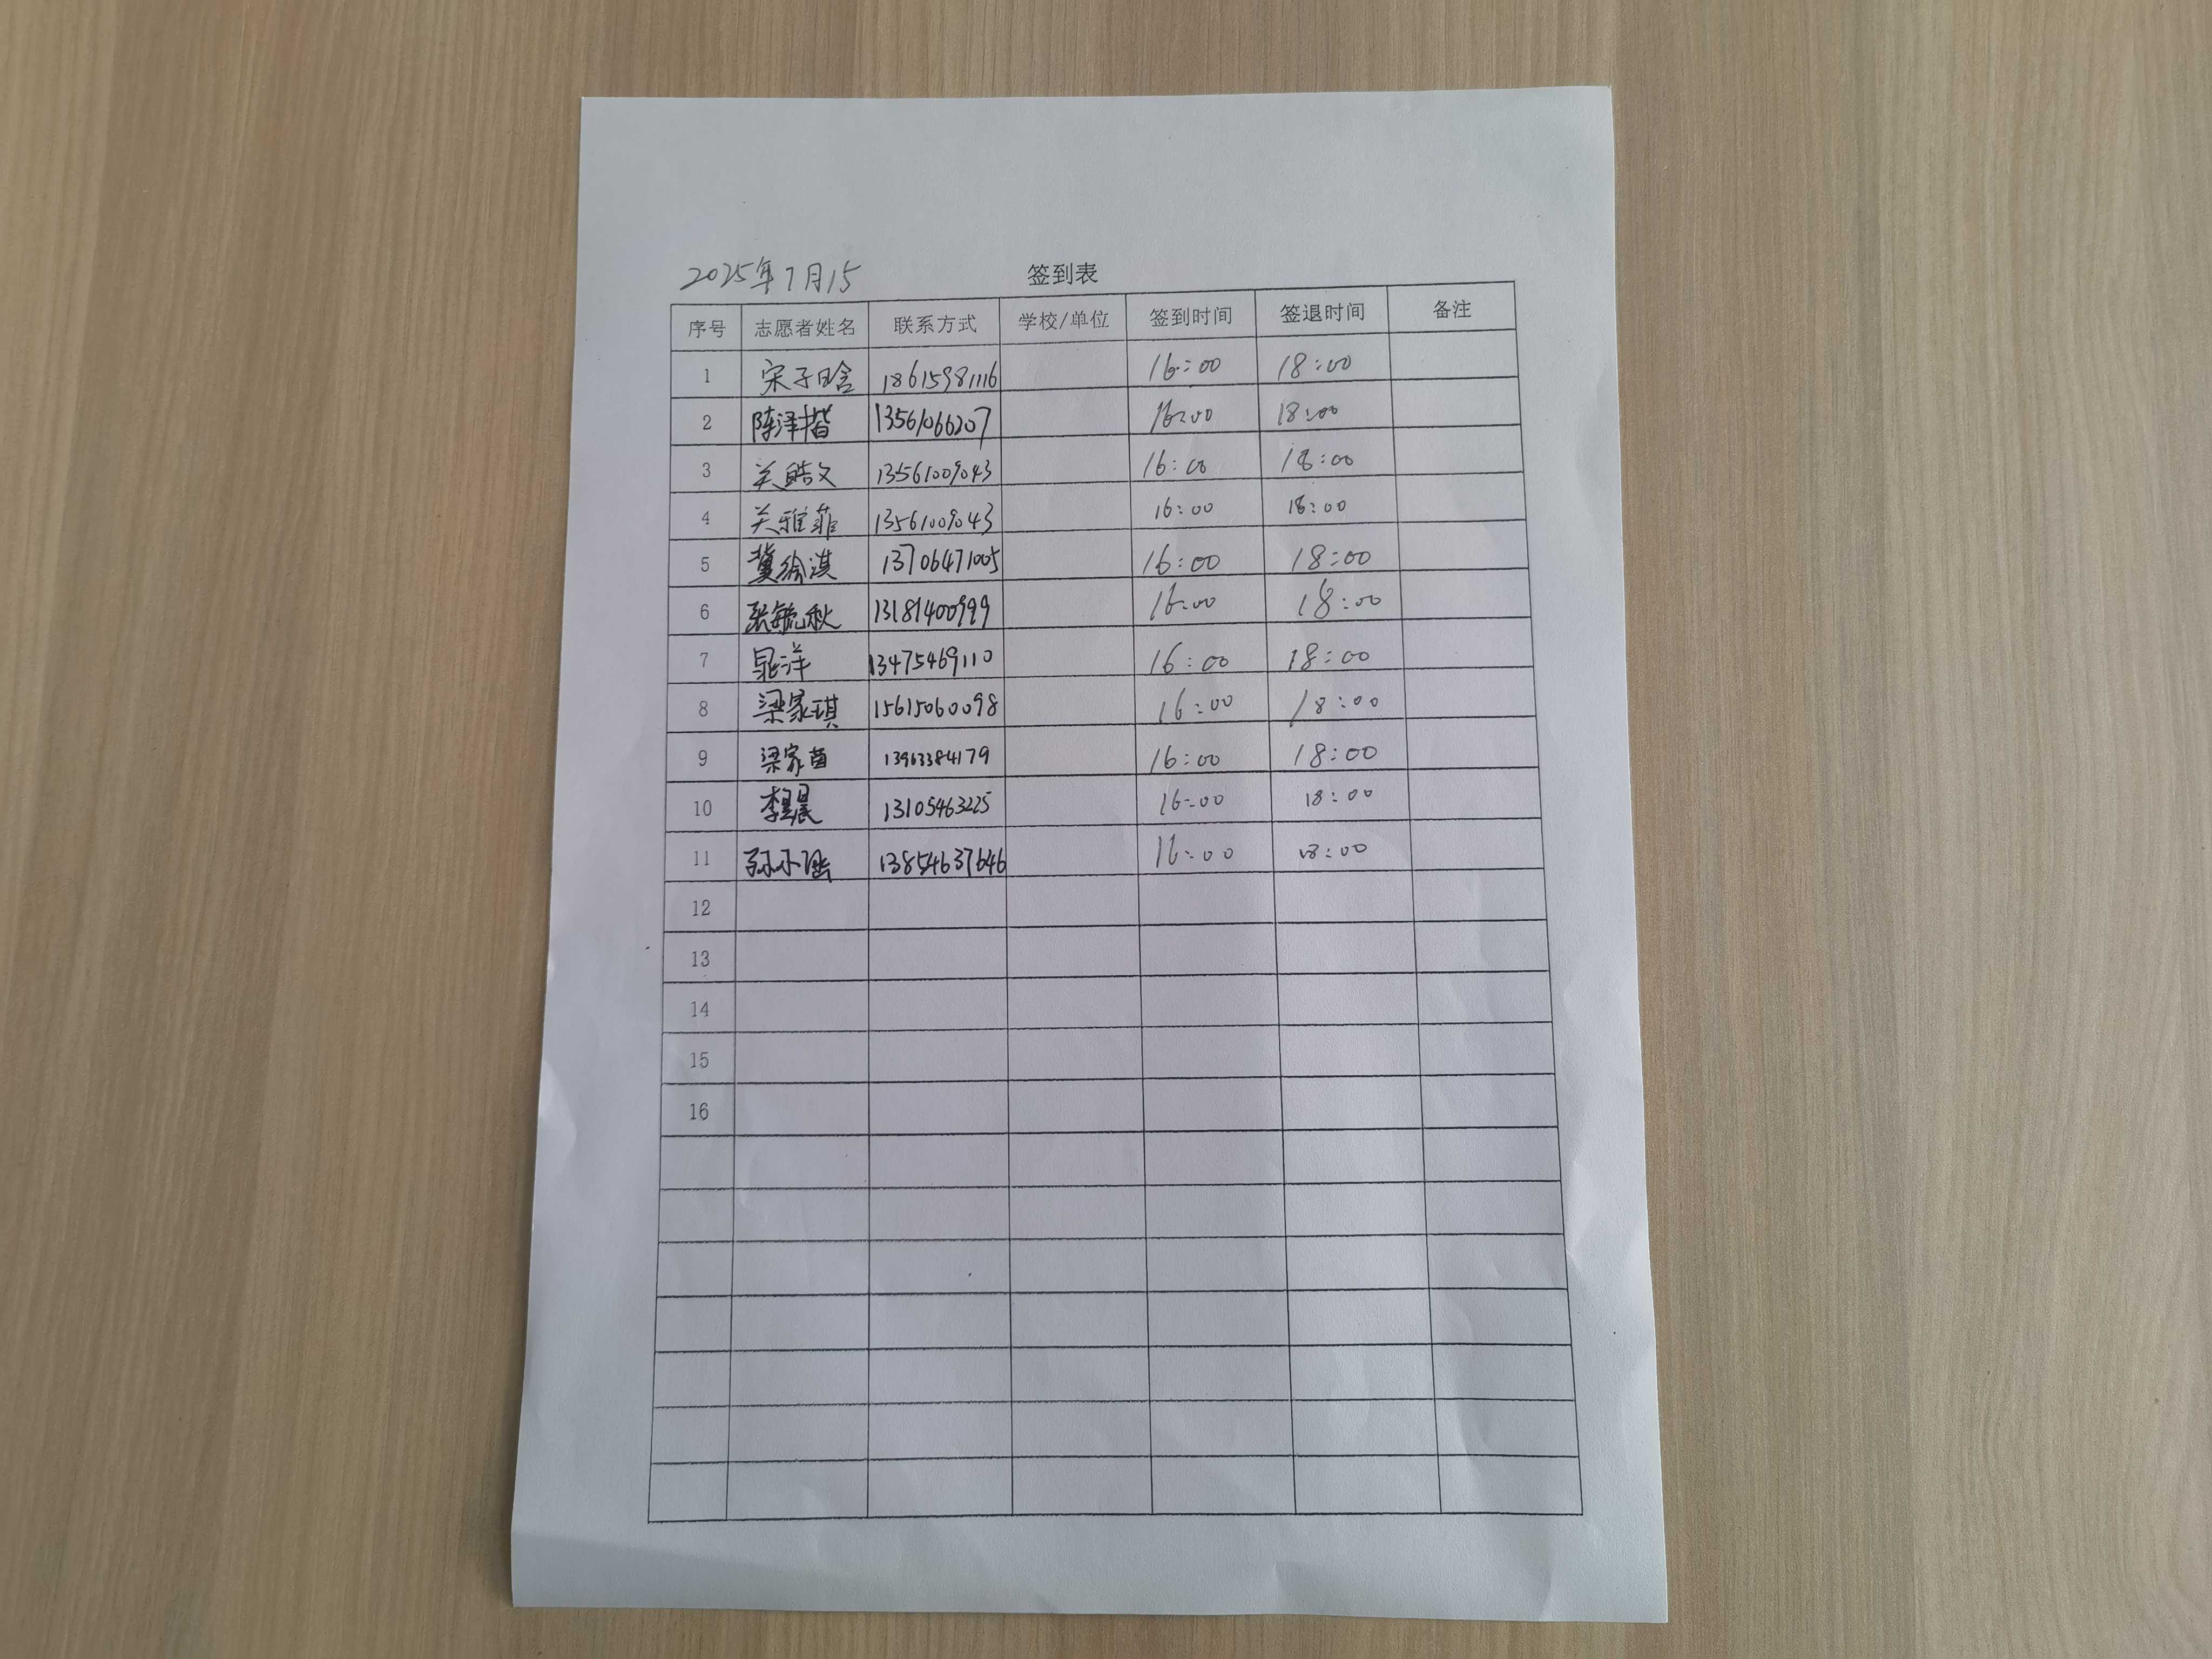 2025年7月15 签到表
序号 志愿者姓名 联系方式 学校/单位 签到时间 签退时间 备注
1 宋子晗 18615981116 16:00 18:00
2 陈泽楷 13561066207 16:00 18:00
3 关皓文 13561009043 16:00 18:00
4 关雅菲 13561009043 16:00 18:00
5 冀徐淇 13706471005 16:00 18:00
6 张毓秋 13181400999 16:00 18:00
7 晁洋 13475469110 16:00 18:00
8 梁家琪 15615060098 16:00 18:00
9 梁家 13963384179 16:00 18:00
10 李昱晨 13105463225 16:00 18:00
11 孙小涵 13854637646 16:00 18:00
12
13
14
15
16